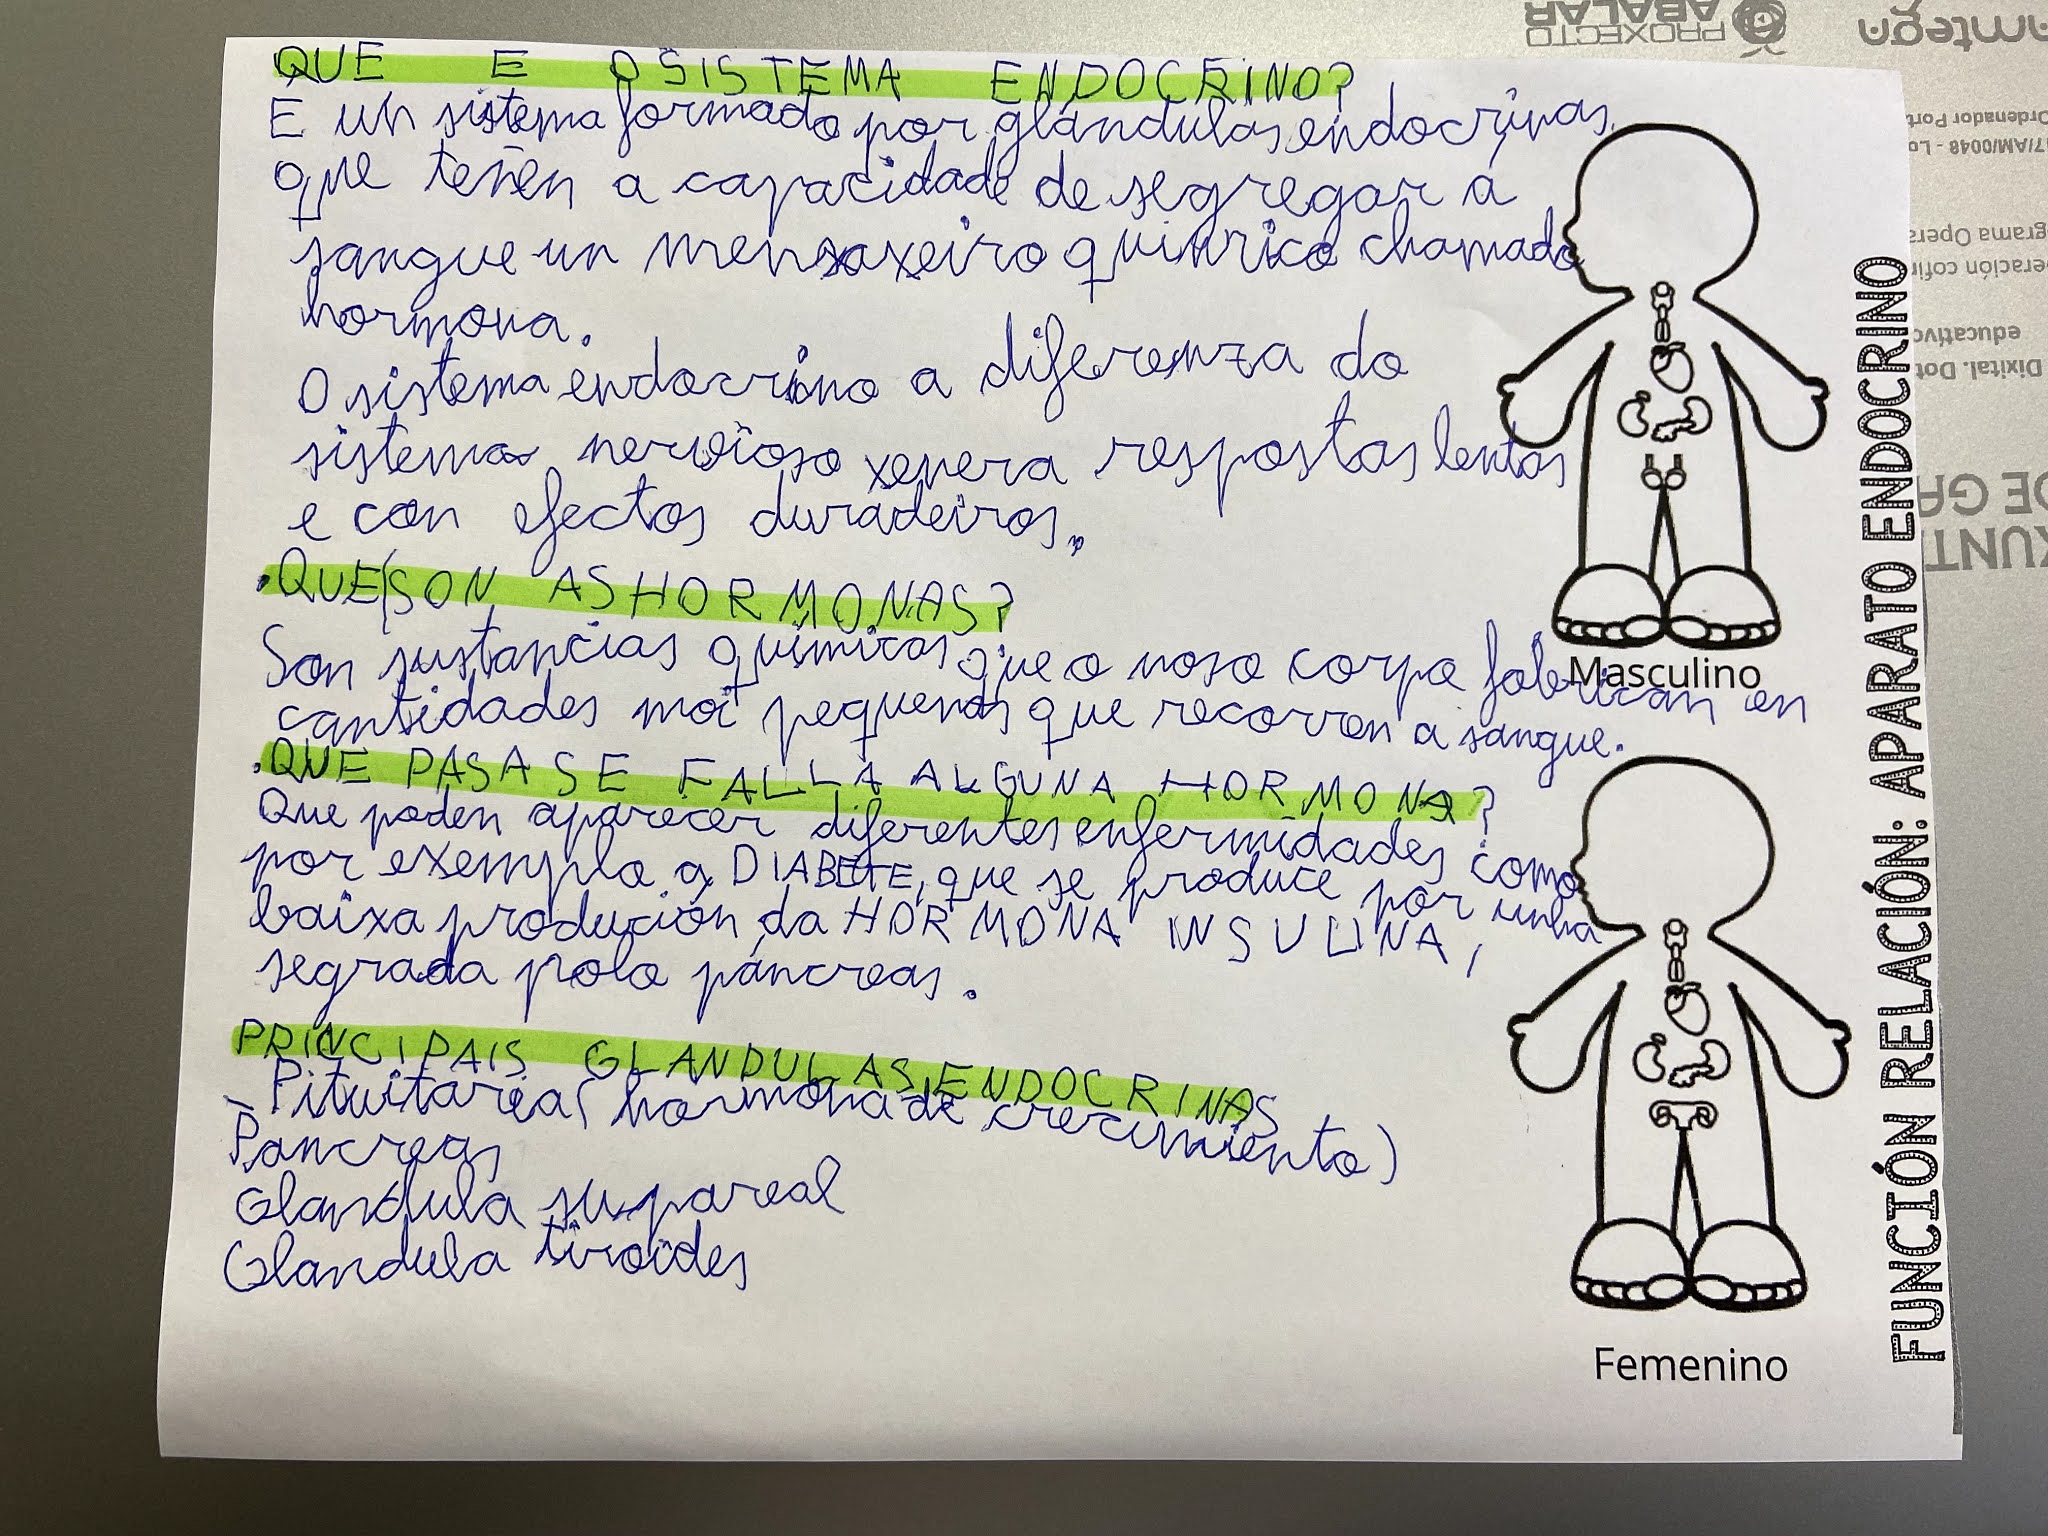 QUE E O SISTEMA ENDOCRINO?
E un sistema formado por glándulas endocrinas,
que teñen a capacidade de segregar á
sangue un mensaxeiro químico chamado
hormona.
O sistema endocrino a diferenza do
sistema nervioso xenera respostas lentas
e con efectos duradeiros.
.QUE SON AS HORMONAS?
Son sustancias químicas que o noso corpo fabrican en
cantidades moi pequenas que recorren a sangue.
.QUE PASA SE FALLA ALGUNA HORMONA?
Que poden aparecer diferentes enfermidades como
por exemplo a DIABETE, que se produce por unha
baixa produción da HORMONA INSULINA,
segrada polo páncreas.
PRINCIPAIS GLANDULAS ENDOCRINAS
- Pituitarea (hormona de crecimiento)
Pancreas
Glandula supareal
Glandula tiroides
Masculino
Femenino
FUNCIÓN RELACIÓN: APARATO ENDOCRINO
PROXECTO
ABALAR
amtega
Ordenador Port
7/AM/0048 - Lo
grama Opera
eración cofin
educativo
Dixital. Dot
XUNT
DE GA